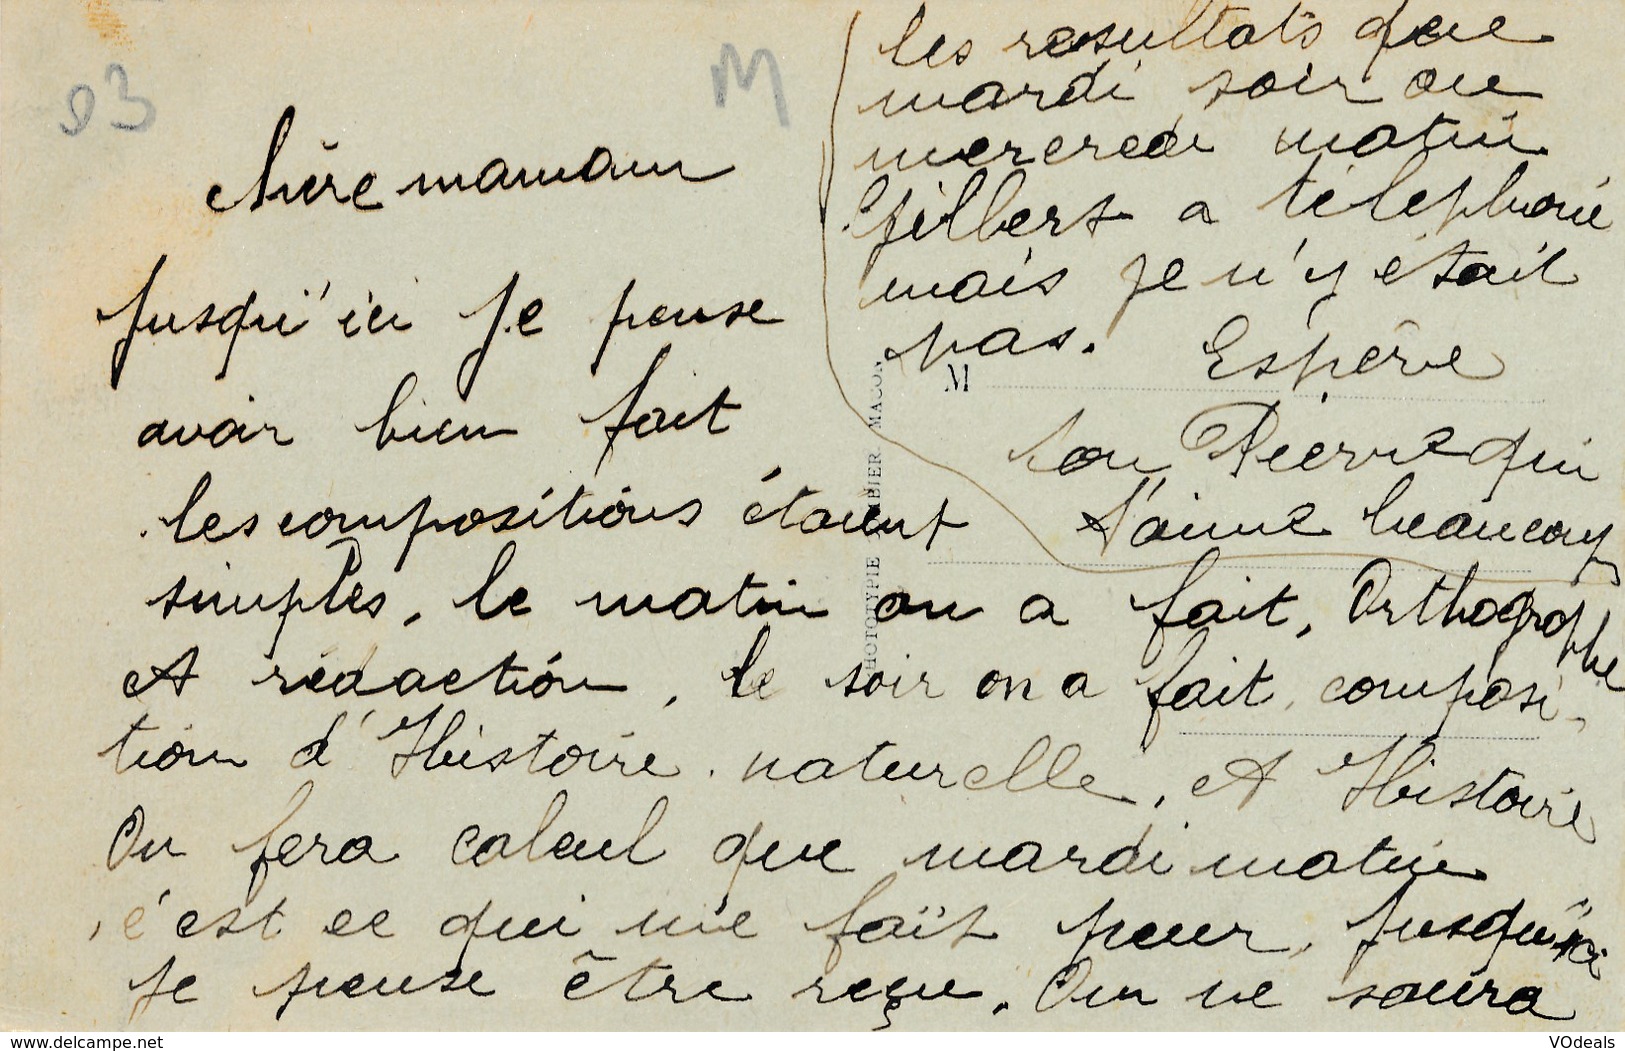 93
M
chère maman
Jusqu'ici je pense
avoir bien fait
les compositions étaient
simples, le matin on a fait, Orthographe
et rédaction, le soir on a fait composi-
tion d'Histoire naturelle, et Histoire
On fera calcul que mardi matin
c'est ce qui me fait peur, jusqu'ici
je pense être reçu. On ne saura
les resultats que
mardi soir ou
mercredi matin
Gilbert a téléphoné
mais je n'y était
pas. Espère
ton Pierre qui
t'aime beaucoup
M
PHOTOTYPIE BIER MACON
www.delcampe.net
VOdeals